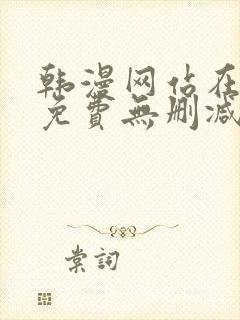 韩漫网站在
免費無删减
棠詞